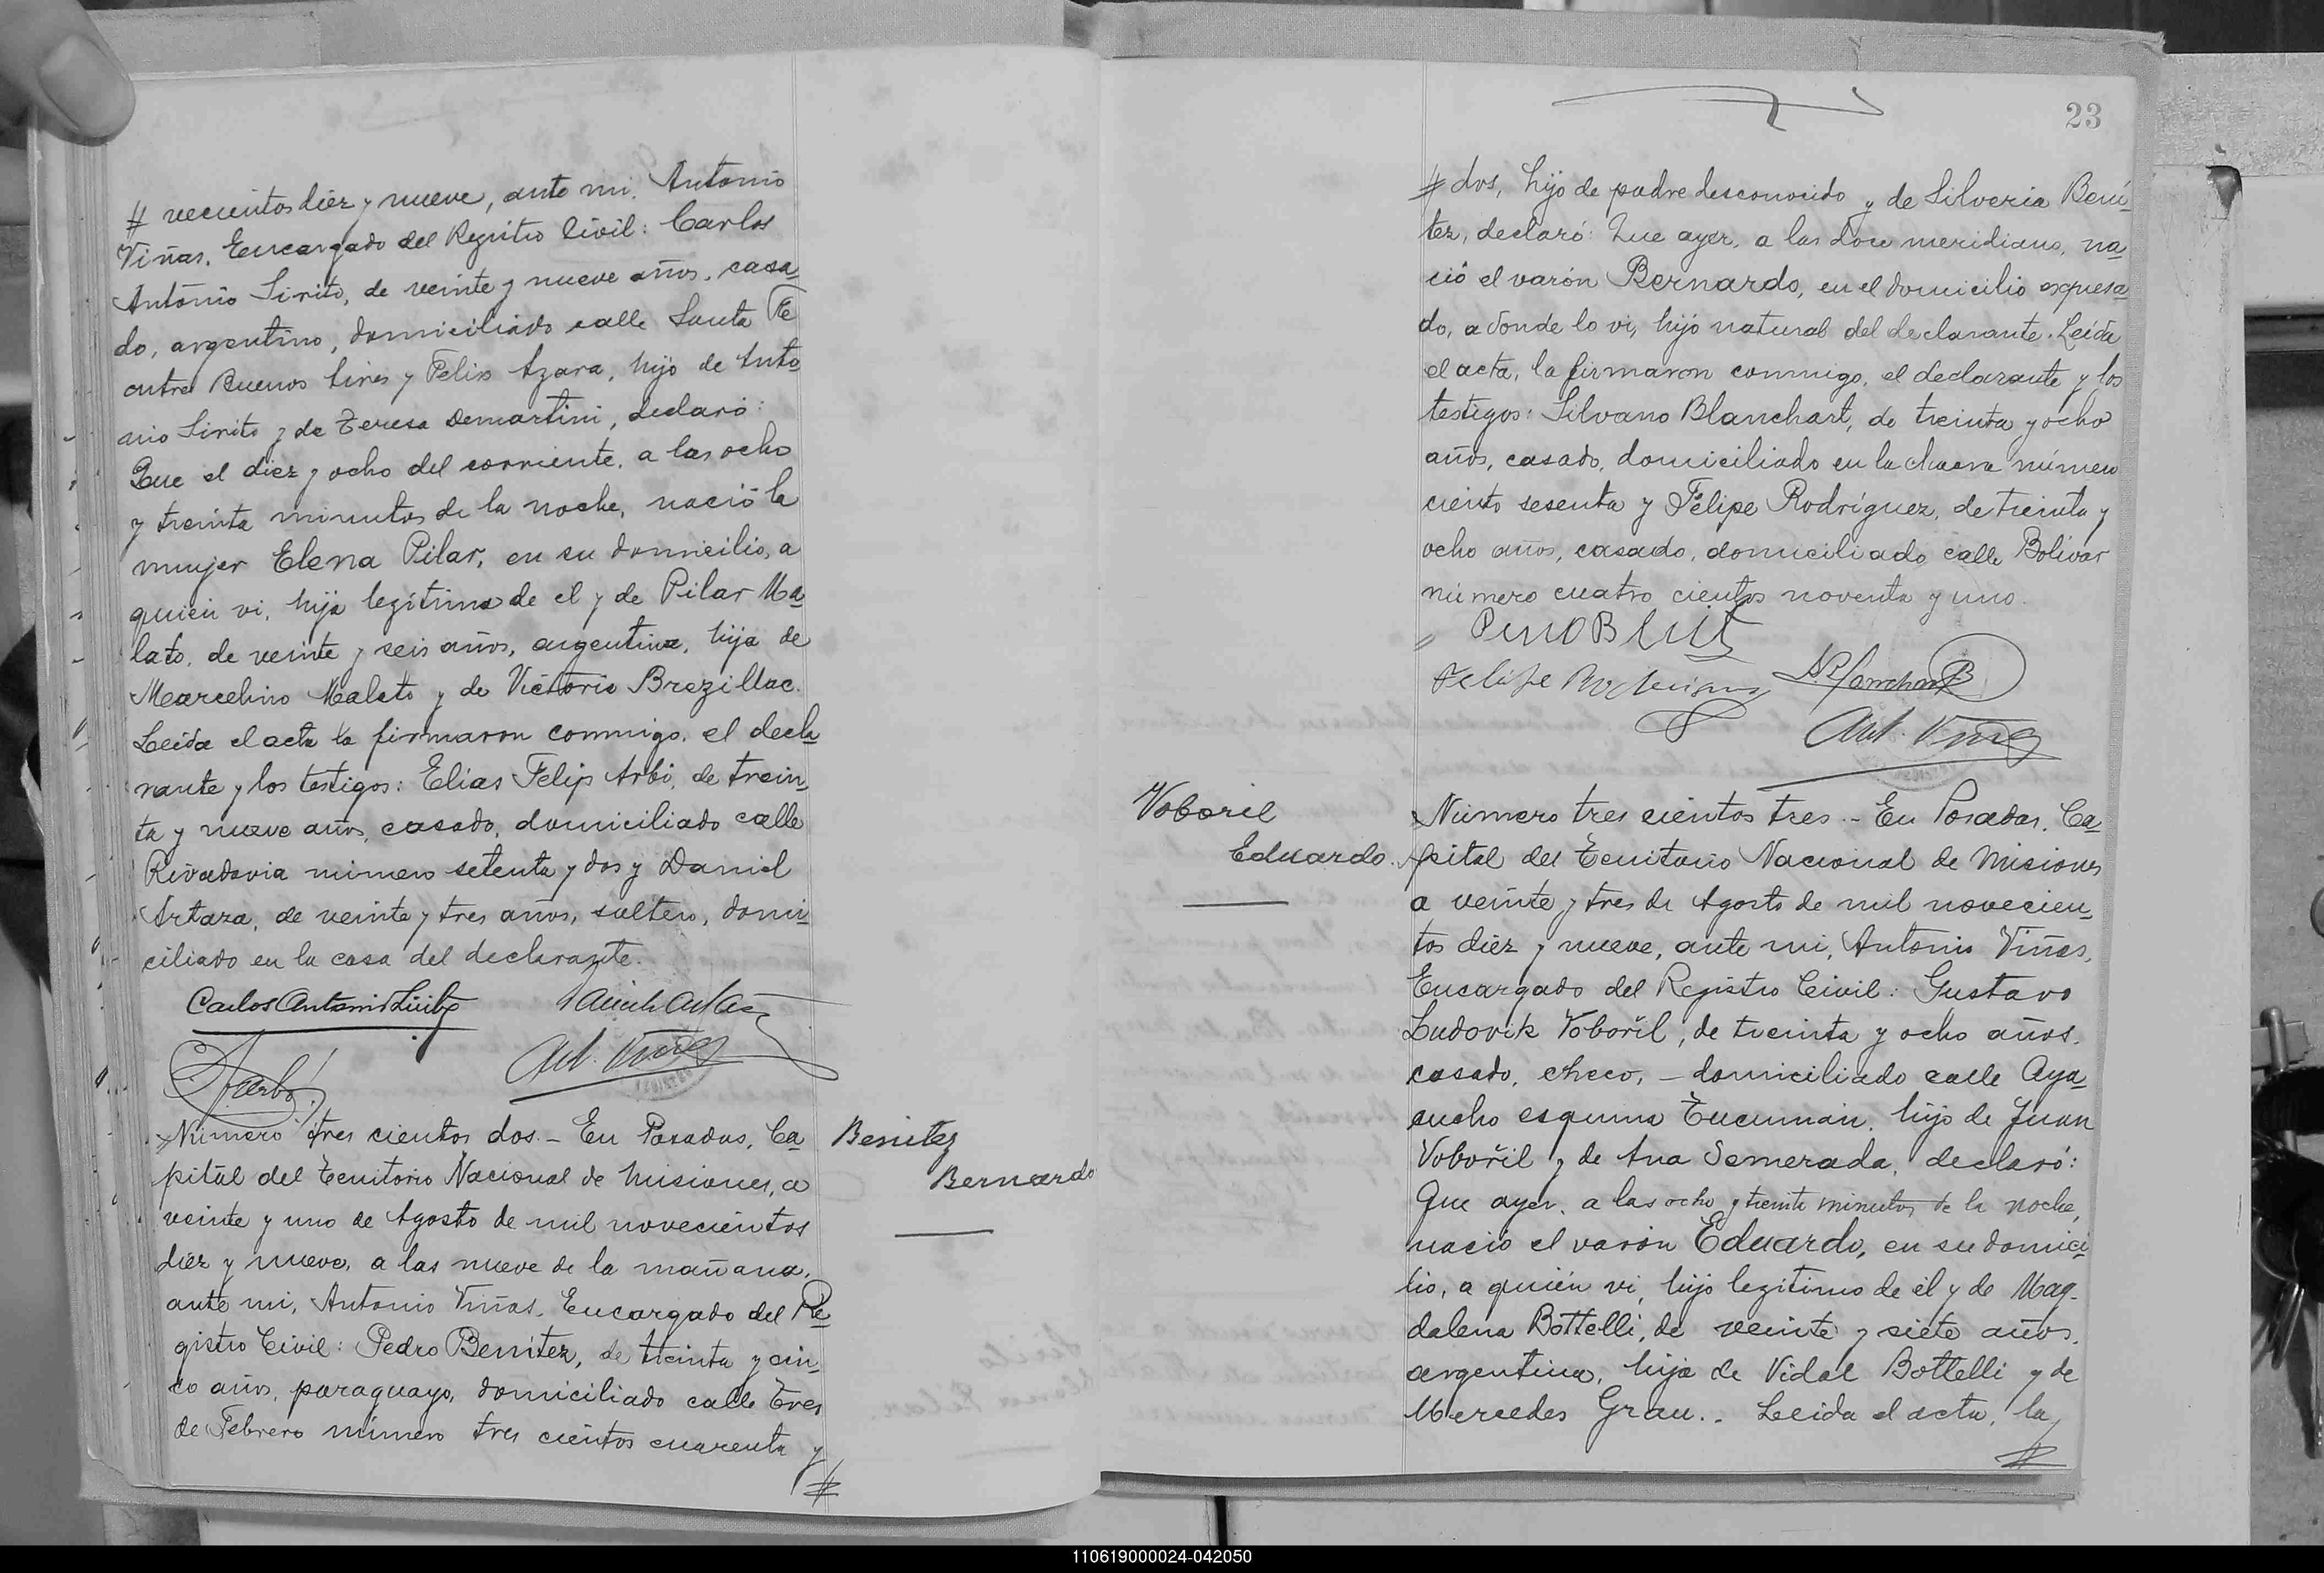 # vecientos diez y nueve, ante mi, Antonio
Viñas, Encargado del Registro Civil: Carlos
Antonio Sirito, de veinte y nueve años, casa
do, argentino, domiciliado calle Santa Fe
entre Buenos Aires y Felix Azara, hijo de Anto
nio Sirito y de Teresa Demartini, declaró:
Que el diez y ocho del corriente, a las ocho
y treinta minutos de la noche, nació la
mujer Elena Pilar, en su domicilio, a
quien vi, hija legítima de el y de Pilar Ma
lato, de veinte y seis años, argentina, hija de
Marcelino Malato y de Victoria Brezillac.
Leida el acta la firmaron conmigo, el decla
rante y los testigos: Elias Felip Arbó, de trein
ta y nueve años, casado, domiciliado calle
Rivadavia número setenta y dos y Daniel
Artaza, de veinte y tres años, soltero, domi
ciliado en la casa del declarante.
Carlos Antonio Sirito
Ant. Viñas
Número tres cientos dos.- En Posadas, Ca
pital del Territorio Nacional de Misiones, a
veinte y uno de Agosto de mil novecientos
diez y nueve, a las nueve de la mañana,
ante mi, Antonio Viñas, Encargado del Re
gistro Civil: Pedro Benitez, de treinta y cin
co años, paraguayo, domiciliado calle Tres
de Febrero número tres cientos cuarenta y
#
Benitez
Bernardo
23
# dos, hijo de padre desconocido y de Silveria Bení
tez, declaró: Que ayer, a las doce meridiano, na
ció el varón Bernardo, en el domicilio expresa
do, a donde lo vi, hijo natural del declarante. Leida
el acta, la firmaron conmigo, el declarante y los
testigos: Silvano Blanchart, de treinta y ocho
años, casado, domiciliado en la chacra número
ciento sesenta y Felipe Rodríguez, de treinta y
ocho años, casado, domiciliado calle Bolívar
número cuatro cientos noventa y uno.
Felipe Rodriguez
Ant. Viñas
Voboril
Eduardo.
Número tres cientos tres.- En Posadas, Ca
pital del Territorio Nacional de Misiones
a veinte y tres de Agosto de mil novecien
tos diez y nueve, ante mi, Antonio Viñas,
Encargado del Registro Civil: Gustavo
Ludovik Vobořil, de treinta y ocho años,
casado, checo, - domiciliado calle Aya
cucho esquina Tucumán, hijo de Juan
Vobořil y de Ana Semerada, declaró:
Que ayer, a las ocho y treinta minutos de la noche,
nació el varón Eduardo, en su domici
lio, a quién vi, hijo legítimo de él y de Mag-
dalena Bottelli, de veinte y siete años,
argentina, hija de Vidal Bottelli y de
Mercedes Grau.- Leida el acta, la
#
110619000024-042050